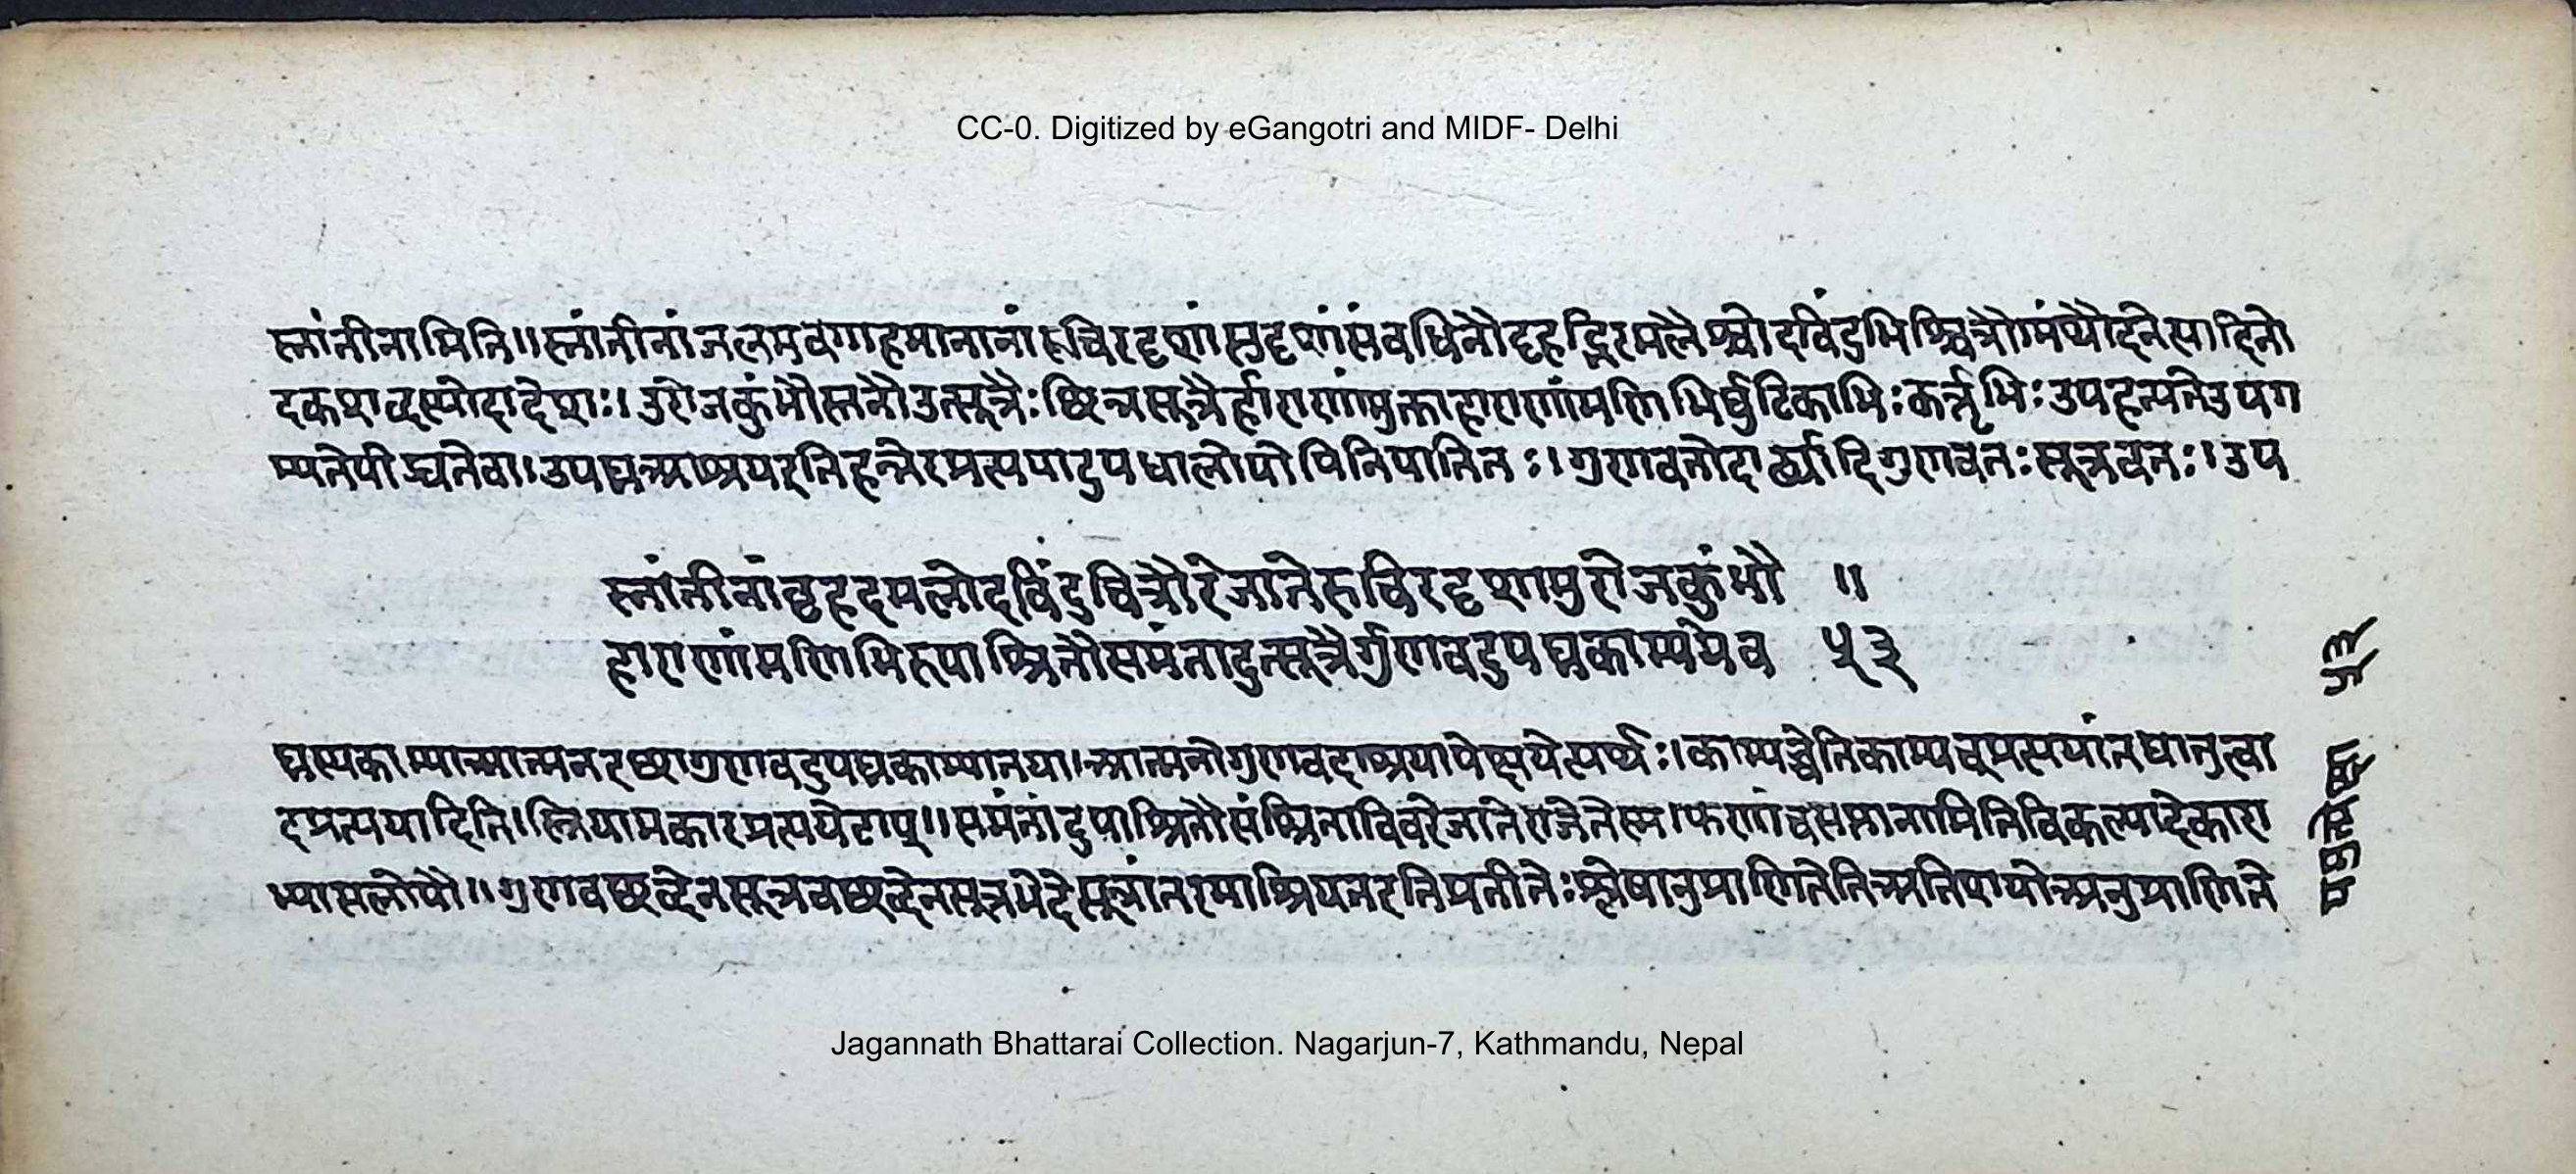 CC-0. Digitized by eGangotri and MIDF- Delhi
स्नांतीनामिति॥स्नांतीनांजलमवगाहमानानांरुचिरदृशांसुदृशांसंबधिनौबृहद्भिरमलैश्चोदबिंदुभिश्चित्रौमंथौदनेत्यादिनो
दकशब्दस्योदादेशः। उरोजकुंभौस्तनौउत्सूत्रैःछिन्नसूत्रैर्हाराणांमुक्ताहाराणांमणिभिर्घुटिकाभिःकर्तृभिःउपहत्यतेउपग
म्यतेपीड्यतेवा।उपघ्नआश्रयइतिहन्तेरप्रत्ययादुपधालोपोपिनिपातितः।गुणवतोदार्ढ्यादिगुणवतःसूत्रवतः।उप
स्नांतीनांबृहदमलोदबिंदुचित्रौरेजातेरुचिरदृशामुरोजकुंभौ ॥
हाराणांमणिभिरुपाश्रितौसमंतादुत्सूत्रैर्गुणवदुपघ्नकाम्ययेव ५३
घ्नस्यकाम्याआत्मनइच्छागुणवदुपघ्नकाम्यातया।आत्मनोगुणवदाश्रयापेक्षयेत्यर्थः।काम्यच्चेतिकाम्यच्प्रत्ययांतधातुत्वा
द्प्रत्ययादिति।स्त्रियामकारप्रत्ययेटाप्॥समंतादुपाश्रितौसंश्रिताविवरेजातेराजेतेस्म।फणांचसप्तानामितिविकल्पादेकारा
भ्यासलोपौ॥गुणवच्छब्देनसूत्रवच्छब्देनसूत्रभेदेसूत्रांतरमाश्रियतइतिप्रतीतेःश्लेषानुप्राणितेतिअतिशयोअनुप्राणिते
Jagannath Bhattarai Collection. Nagarjun-7, Kathmandu, Nepal